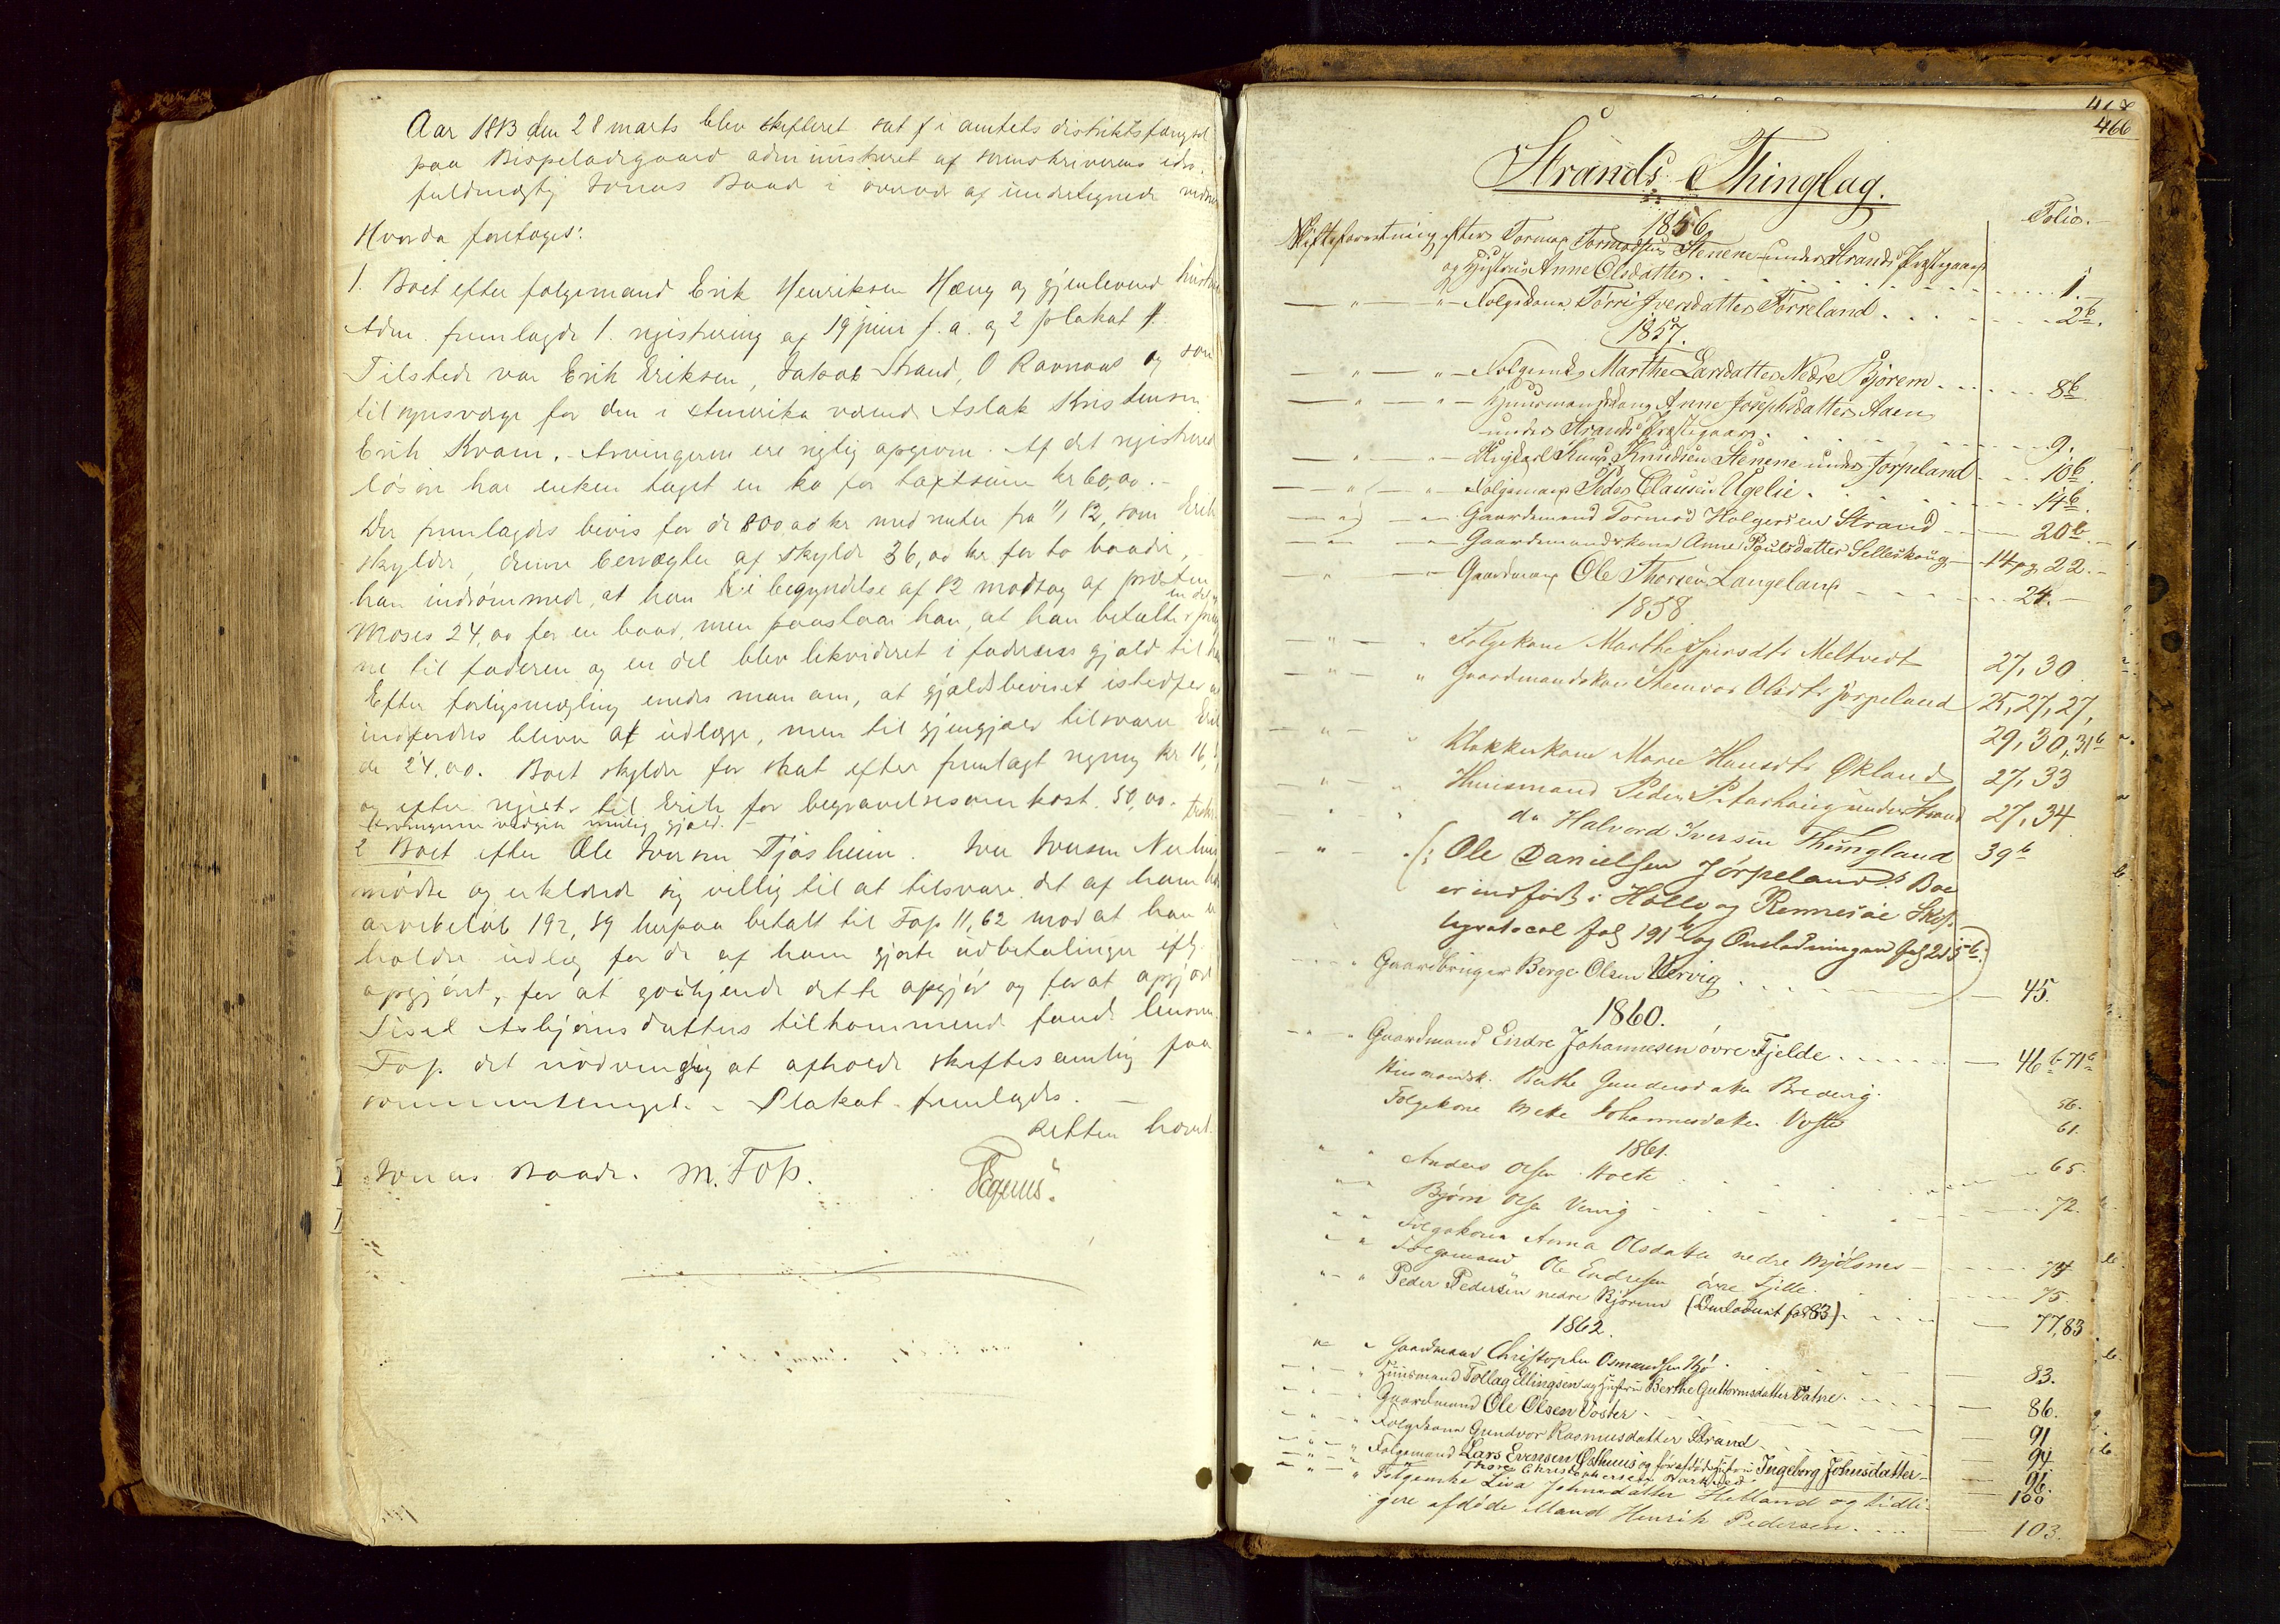 Aar 1883 den 28 marts blev skifteret sat i amtets distriktsfængsel
paa Bispeladegaard administreret af sorenskriverens edsv.
fuldmægtig Jonas Baade i overvær af undertegnede vidner
Hvorda foretoges:
1. Boet efter følgemand Erik Henriksen Hæng og gjenlevend hustru
Adm. fremlagde 1. registrering af 19 juni f. a. og 2 plakat
Tilstede var Erik Eriksen, Jakob Strand, O Ravnaas og som
tilsynsværge for den i Amerika værende Aslak Kristensen
Erik Kvam. Arvingerne ere rigtig opgivne. Af det registrered
løsøre har enken taget en ko for taxtsum kr 60,00.
Der fremlagdes bevis for de 800,00 kr med renter fra 1/1 82, som Erik
skylder, denne benægter at skylde 36,00 kr for to baade,
han indrømmede, at han i begyndelse af 82 modtog af præsten
Moses 24,00 for en baad, men paastaar han, at han betalte
ne til faderen og en del blev likvideret i faderens gjæld til
Efter forligsmægling enedes man om, at gjældsbeviset istedfor at
inddrives bliver at udlægge, men til gjengjæld tilsvarer Erik
de 24,00. Boet skylder for skat efter fremlagt regning kr 16,
og efter registr. til Erik for begravelsesomkost. 50,00.
Arvingerne vedgik mulig gjæld.
2 Boet efter Ole Iversen Tjøsheim. Iver Iversen
mødte og erklærede sig villig til at tilsvare det af ham
arvebeløb 192,89 herpaa betalt til Fop 11,62 mod at han
holdes udlæg for de af ham gjorte udbetalinger eftr.
opgjøret, for at godkjende dette opgjør og for at opgjøre
Sisel Asbjørnsdatters tilkommende fandt lensm.
Fop. det nødvendig at afholde skiftesamling paa
sommertinget. - Plakat fremlagdes.
Retten hævet.
Jonas Baade. M. Fop.
466
Strands Thinglag.
Folio.
1856.
Skifteforretning efter Tormod Tormodsen Stenene under Strands Præstegaard
og Hustrue Anne Olsdatter 1.
Folgekone Torri Iversdatter Tørreland 2b.
1857.
Folgeenke Marthe Larsdatter Nedre Bjørem 8b
Huusmandskone Anne Josephsdatter Aaen
under Strands Præstegaard 9.
Ungkarl Knud Knudsen Stenene under Jørpeland 10b
Folgemand Peder Clausen Ugelie 14b.
Gaardmand Tormod Holgersen Strand 20b.
Gaardmandskone Anne Poulsdatter Selleskoug 14 og 22.
Gaardmand Ole Thorsen Langeland 24.
1858
Folgekone Marthe Meltvedt 27, 30
Gaardmandskone Steinvor Olsdtr Jørpeland 25, 27, 27,
29, 30, 31b
Klokkerkone Maren Hansdtr Økland 27, 33
Huusmand Peder Petarhaug under Strand 27, 34
do Halvord Iversen Thungland 39b
(: Ole Danielsen Jørpelands Boe
er indført i Holle og Rennesøe Skif-
teprotocol fol 191b og Omladningen fol 215b:)
Gaardbruger Berge Olsen Vervig 45.
1860.
Gaardmand Eindre Johannesen øvre Fjelde 46b 71a
Husmandsk. Berthe Gundersdatter Bredvig. 56.
Folgekone Johannesdatter Voster 61.
1861.
Anders Olsen 65.
Bjørn Olsen Vervig 72.
Folgekone Anna Olsdatter nedre Mjølsnes 74
Folgemand Ole Endresen øvre Fjelde. 75
Peder Pedersen nedre Bjørem (Omladent fol 83) 77, 83
1862.
Gaardmand Christopher Osmundsen 83.
Huusmand Tollag Ellingsen og Hustru Berthe Guttormsdatter Tatne. 86.
Gaardmand Ole Olsen Voster 91
Folgekone Gundvor Rasmusdatter Strand 94
Folgemand Lars Evensen Østhuus og førafdøde Hustru Ingeborg Johnsdatter 96.
Thore Christophersen 100
Folgeenke Liva Johnsdatter Hetland og tidli-
gere afdøde Mand Henrik Pedersen. 103.